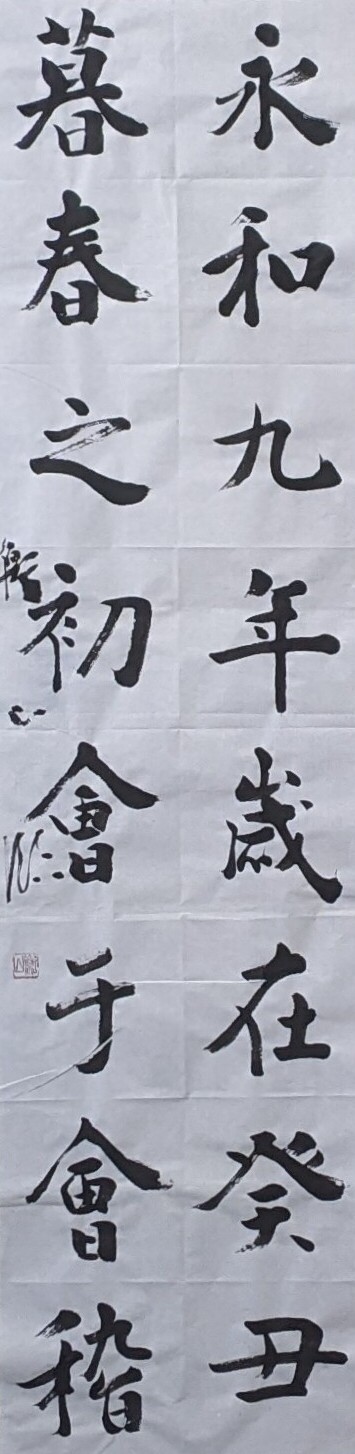 永和九年歲在癸丑
暮春之初會于會稽